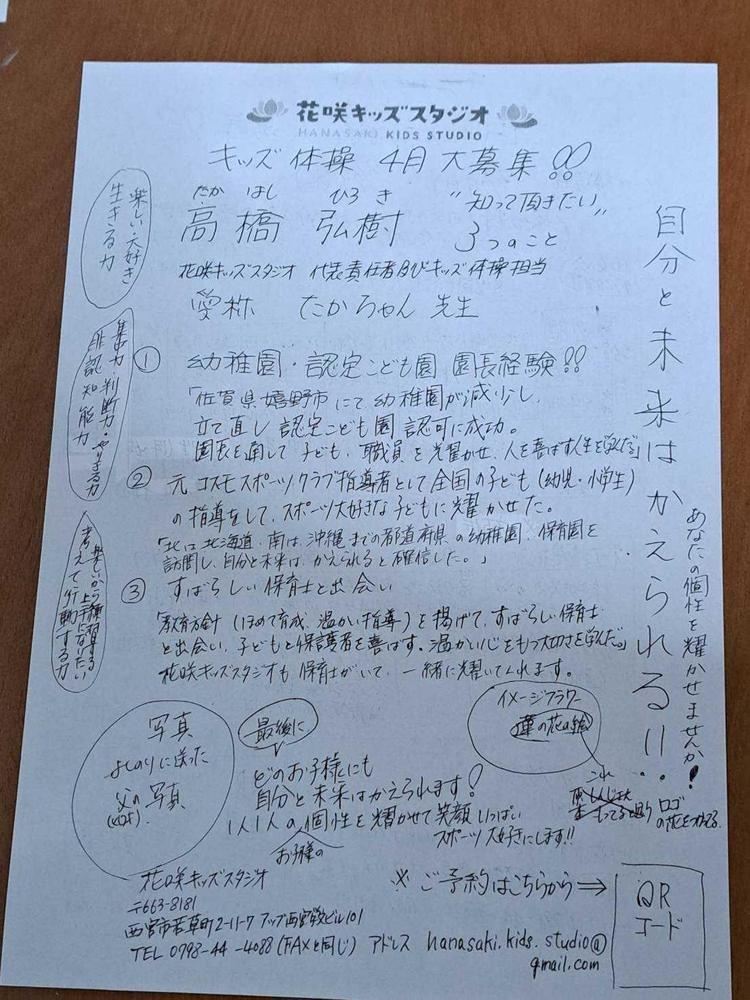 花咲キッズスタジオ
HANASAKI KIDS STUDIO
キッズ 体操 4月 大募集!!
たか はし ひろ き
高橋 弘樹
"知って頂きたい"
3つのこと
花咲キッズスタジオ 代表責任者及びキッズ体操担当
愛称 たかちゃん 先生
楽しい・大好き
生きる力
集中力・判断力・やりきる力
非認知能力
楽しいから練習する
上手になりたい
考えて行動する力
① 幼稚園・認定こども園 園長経験!!
「佐賀県嬉野市にて幼稚園が減少し、
立て直し認定こども園認可に成功。
園長を通して子ども、職員を光耀かせ、人を喜ばす人生を学んだ。」
② 元コスモスポーツクラブ指導者として全国の子ども(幼児・小学生)
の指導をして、スポーツ大好きな子どもに耀かせた。
「北は北海道、南は沖縄までの都道府県の幼稚園、保育園を
訪問し、自分と未来は、かえられると確信した。」
③ すばらしい保育士と出会い
「教育方針(ほめて育成、温かい指導)を掲げて、すばらしい保育士
と出会い、子どもと保護者を喜ばす。温かい心をもつ大切さを学んだ。」
花咲キッズスタジオも保育士がいて、一緒に耀いてくれます。
自分と未来はかえられる!!
あなたの個性を耀かせませんか!
写真
よしのりに送った
父の写真
最後に
どのお子様にも
自分と未来はかえられます!
1人1人の個性を耀かせて笑顔いっぱい
お子様の
スポーツ大好きにします!!
イメージフラワー
蓮の花の絵
これ
ロゴ
の花をつかえる
花咲キッズスタジオ
〒663-8181
西宮市若草町2-11-7 アップ西宮駅ビル101
TEL 0798-44-4088(FAXも同じ) アドレス hanasaki.kids.studio@
gmail.com
※ご予約はこちらから⇒
QR
コード